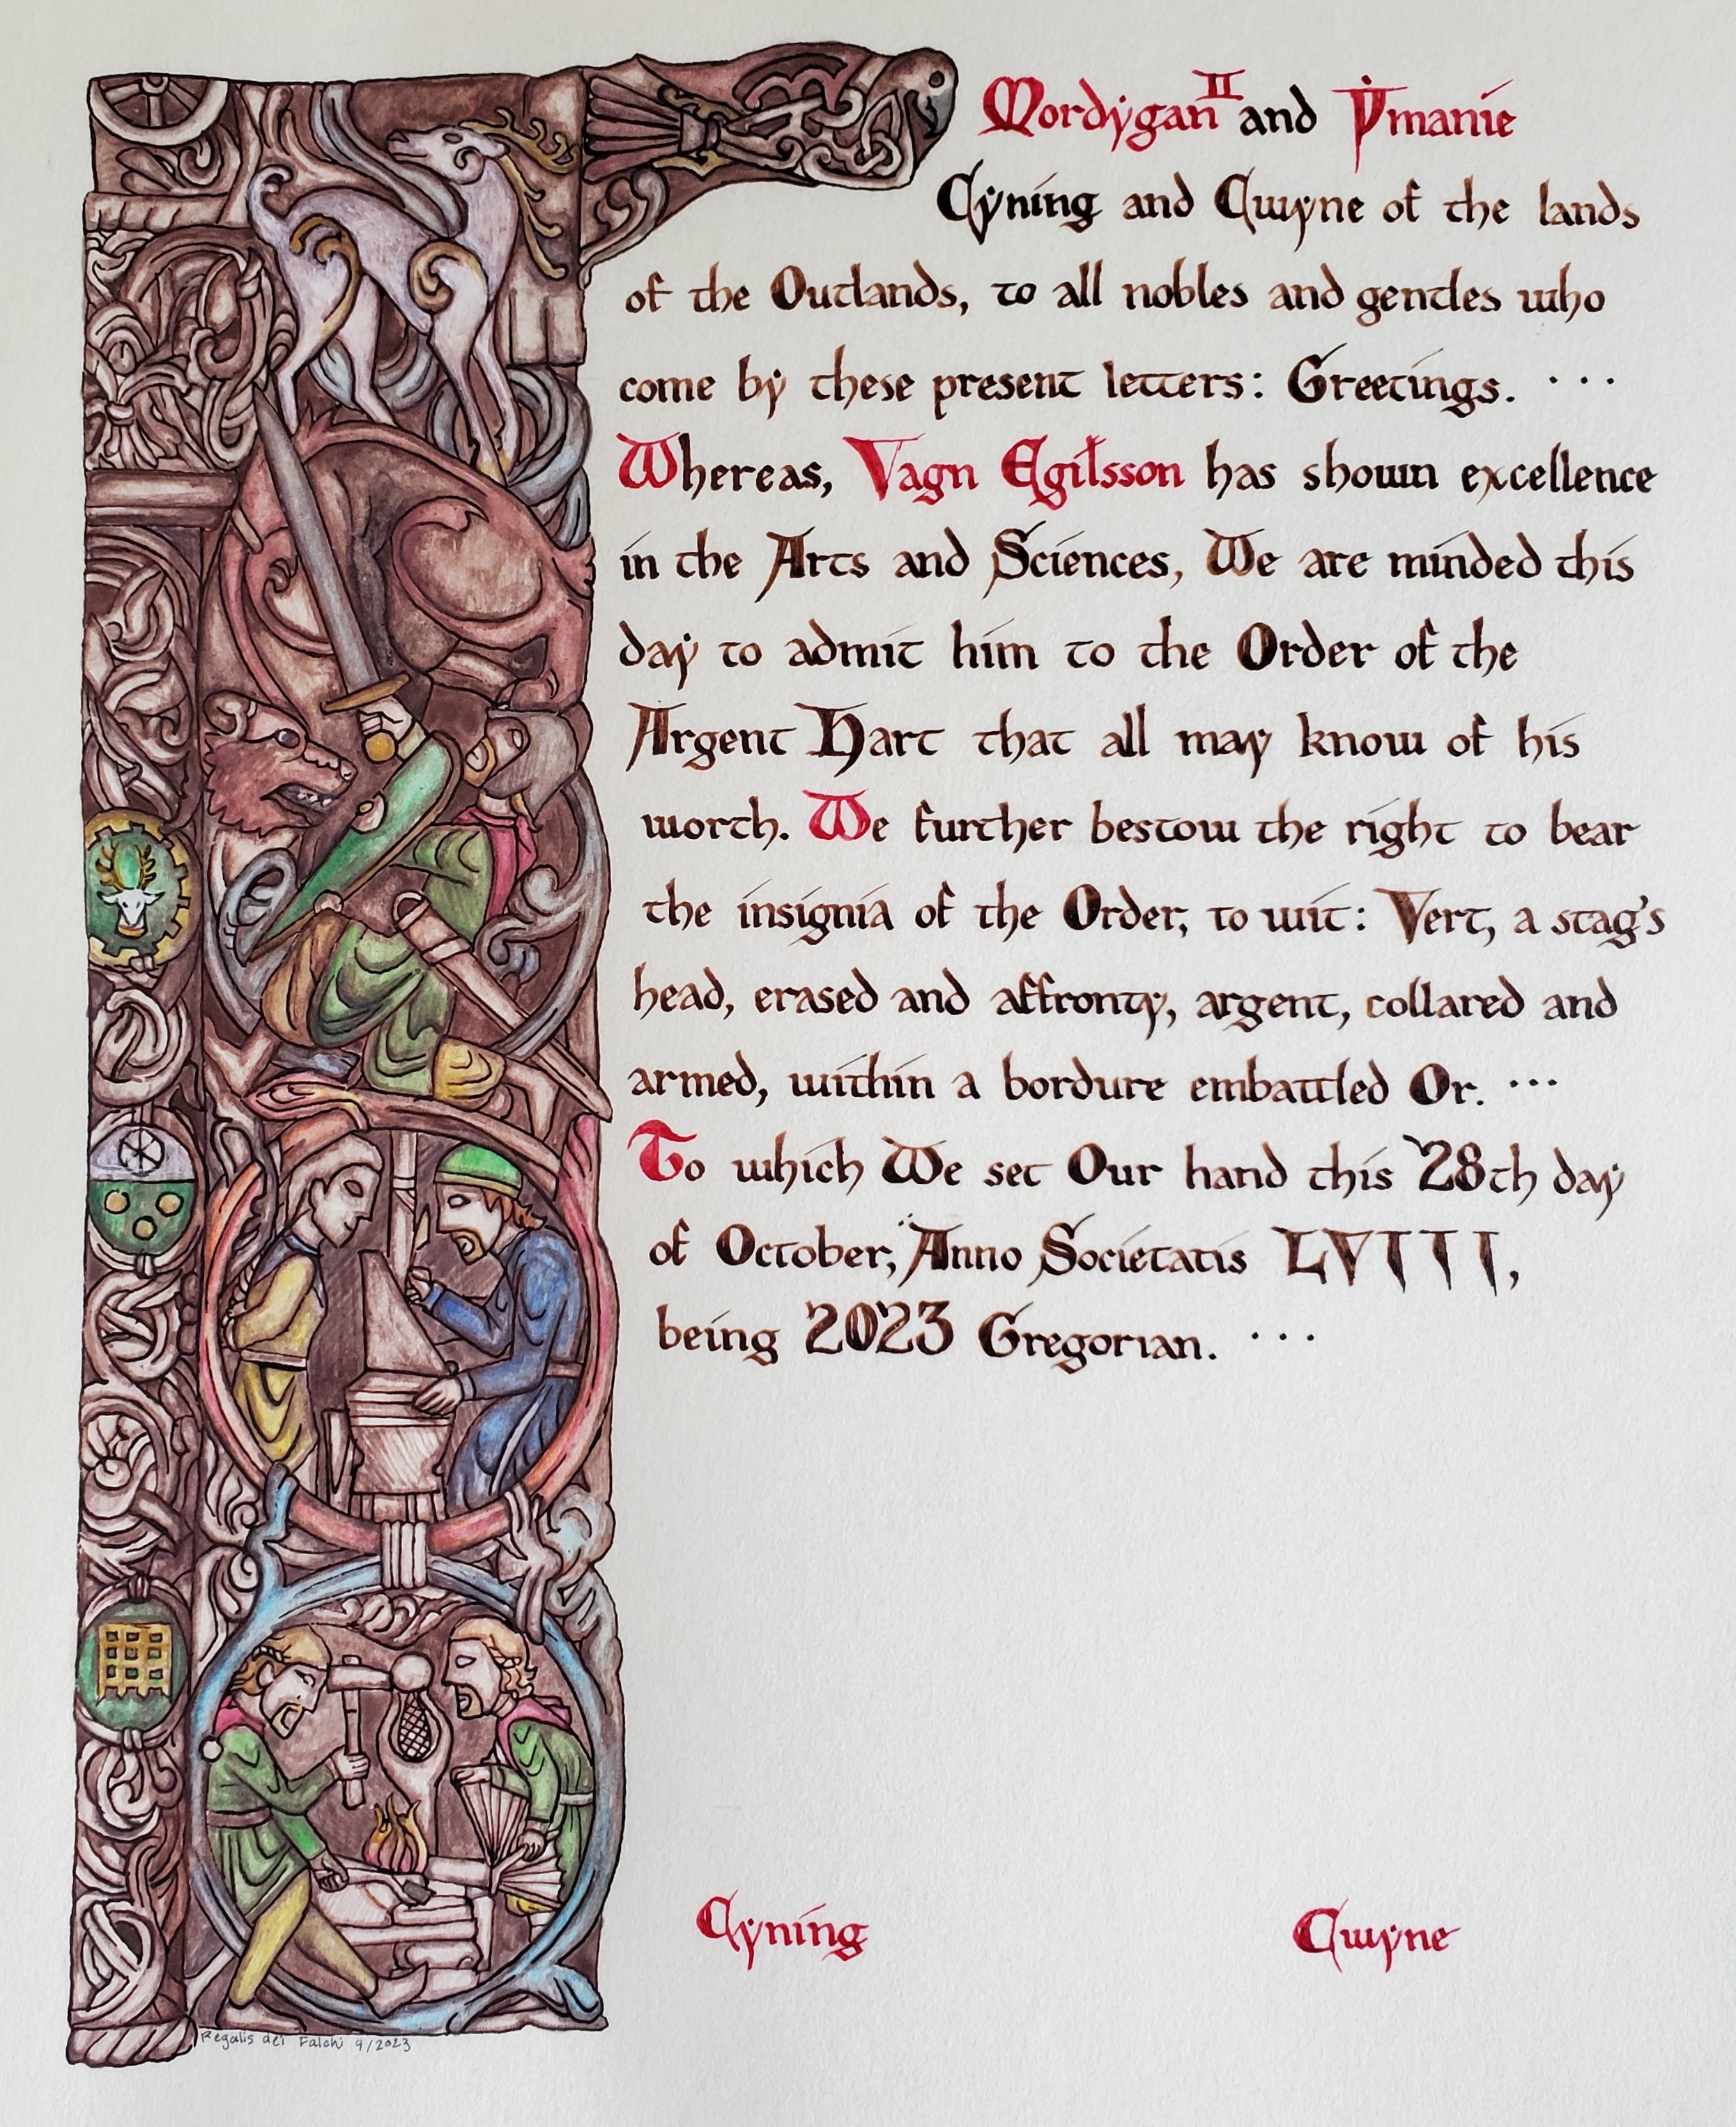 Mordygan II and Ymanie
Cyning and Cwyne of the lands
of the Outlands, to all nobles and gentles who
come by these present letters: Greetings. ...
Whereas, Vagn Egilsson has shown excellence
in the Arts and Sciences, We are minded this
day to admit him to the Order of the
Argent Hart that all may know of his
worth. We further bestow the right to bear
the insignia of the Order, to wit: Vert, a stag's
head, erased and affronty, argent, collared and
armed, within a bordure embattled Or. ...
To which We set Our hand this 28th day
of October, Anno Societatis LVIII,
being 2023 Gregorian. ...
Cyning Cwyne
Regalis dei Falchi 9/2023